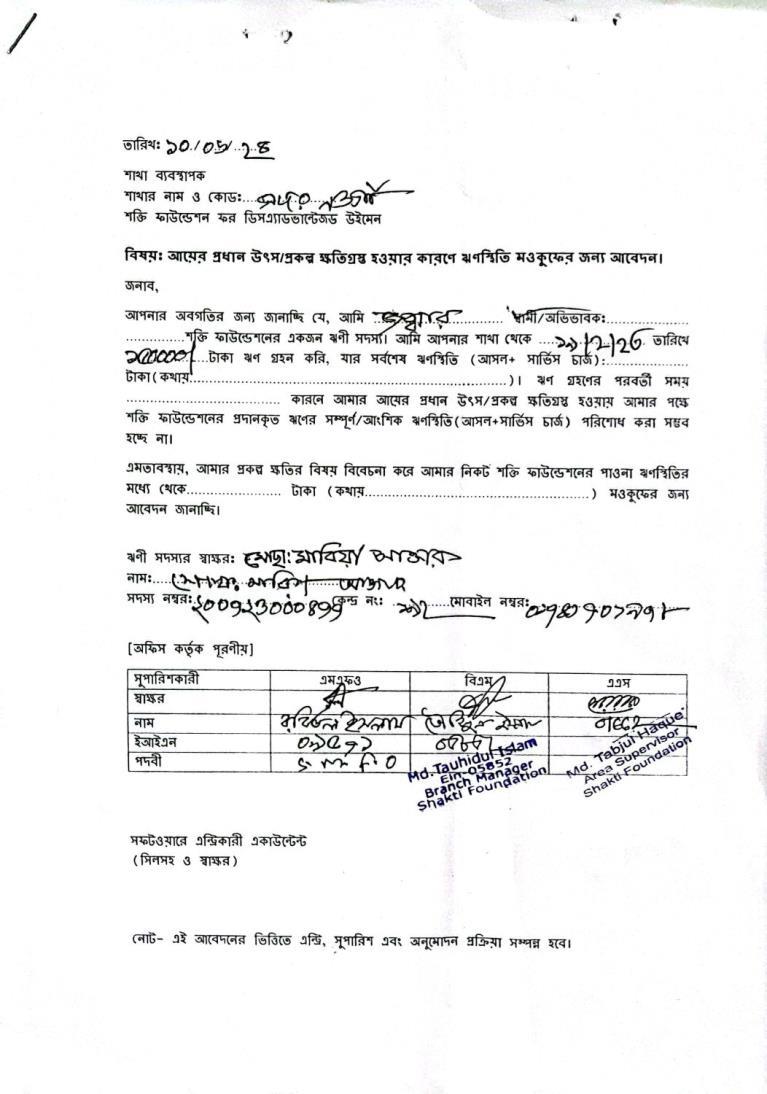 তারিখঃ ১০/০৫/২৪
শাখা ব্যবস্থাপক
শাখার নাম ও কোড:....................
শক্তি ফাউন্ডেশন ফর ডিসএ্যাডভান্টেজড উইমেন
বিষয়: আয়ের প্রধান উৎস/প্রকল্প ক্ষতিগ্রস্থ হওয়ার কারণে ঋণস্থিতি মওকুফের জন্য আবেদন।
জনাব,
আপনার অবগতির জন্য জানাচ্ছি যে, আমি .................... স্বামী/অভিভাবক:....................
....................শক্তি ফাউন্ডেশনের একজন ঋণী সদস্য। আমি আপনার শাখা থেকে .................... তারিখে
....................টাকা ঋণ গ্রহন করি, যার সর্বশেষ ঋণস্থিতি (আসল+ সার্ভিস চার্জ):....................
টাকা(কথায়....................)। ঋণ গ্রহণের পরবর্তী সময়
.................... কারনে আমার আয়ের প্রধান উৎস/প্রকল্প ক্ষতিগ্রস্থ হওয়ায় আমার পক্ষে
শক্তি ফাউন্ডেশনের প্রদানকৃত ঋণের সম্পূর্ণ/আংশিক ঋণস্থিতি(আসল+সার্ভিস চার্জ) পরিশোধ করা সম্ভব
হচ্ছে না।
এমতাবস্থায়, আমার প্রকল্প ক্ষতির বিষয় বিবেচনা করে আমার নিকট শক্তি ফাউন্ডেশনের পাওনা ঋণস্থিতির
মধ্যে থেকে.................... টাকা (কথায়....................) মওকুফের জন্য
আবেদন জানাচ্ছি।
ঋণী সদস্যর স্বাক্ষর: মোছা: মারিয়া আক্তার
নাম:.................... আক্তার
সদস্য নম্বর: কেন্দ্র নং: মোবাইল নম্বর:
[অফিস কর্তৃক পূরণীয়]
সুপারিশকারী এমএফও বিএম এএস
স্বাক্ষর
নাম ইসলাম
ইআইএন
পদবী
Md. Tauhidul Islam
Ein-05852
Branch Manager
Shakti Foundation
Md. Tabjul Haque
Area Supervisor
Shakti Foundation
সফটওয়ারে এন্ট্রিকারী একাউন্টেন্ট
(সিলসহ ও স্বাক্ষর)
নোট- এই আবেদনের ভিত্তিতে এন্ট্রি, সুপারিশ এবং অনুমোদন প্রক্রিয়া সম্পন্ন হবে।